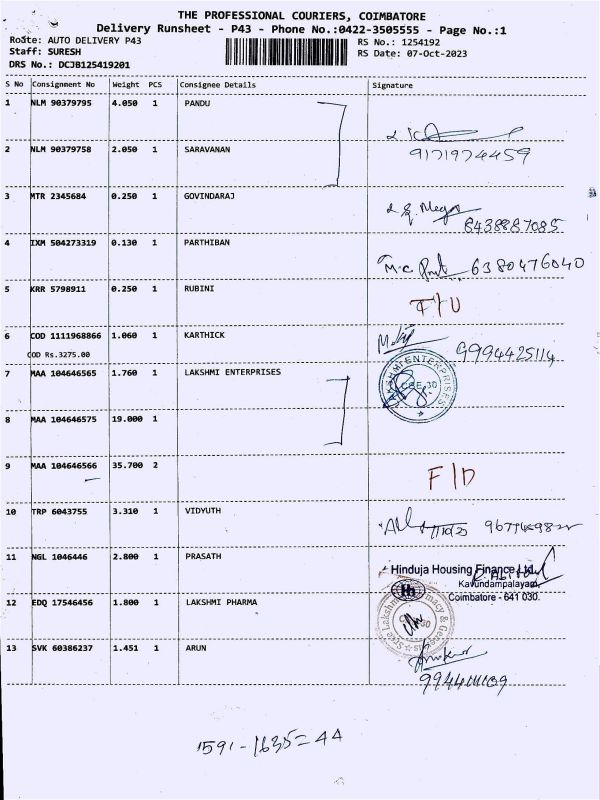 THE PROFESSIONAL COURIERS, COIMBATORE
Delivery Runsheet - P43 - Phone No.:0422-3505555 - Page No.:1
Route: AUTO DELIVERY P43
RS No.: 1254192
Staff: SURESH
RS Date: 07-Oct-2023
DRS No.: DCJB125419201
S No Consignment No Weight PCS Consignee Details Signature
1 NLM 90379795 4.050 1 PANDU
2 NLM 90379758 2.050 1 SARAVANAN
9171974459
3 MTR 2345684 0.250 1 GOVINDARAJ
8438887085
4 IXM 504273319 0.130 1 PARTHIBAN
6380476040
5 KRR 5798911 0.250 1 RUBINI
6 COD 1111968866 1.060 1 KARTHICK
9994425114
COD Rs.3275.00
7 MAA 104646565 1.760 1 LAKSHMI ENTERPRISES
LAKSHMI ENTERPRISES
CBE 30
8 MAA 104646575 19.000 1
9 MAA 104646566 35.700 2
F/D
10 TRP 6043755 3.310 1 VIDYUTH
11 NGL 1046446 2.800 1 PRASATH
Hinduja Housing Finance Ltd.
Kavundampalayam,
Coimbatore - 641 030.
12 EDQ 17546456 1.800 1 LAKSHMI PHARMA
13 SVK 60386237 1.451 1 ARUN
1591-1635=44